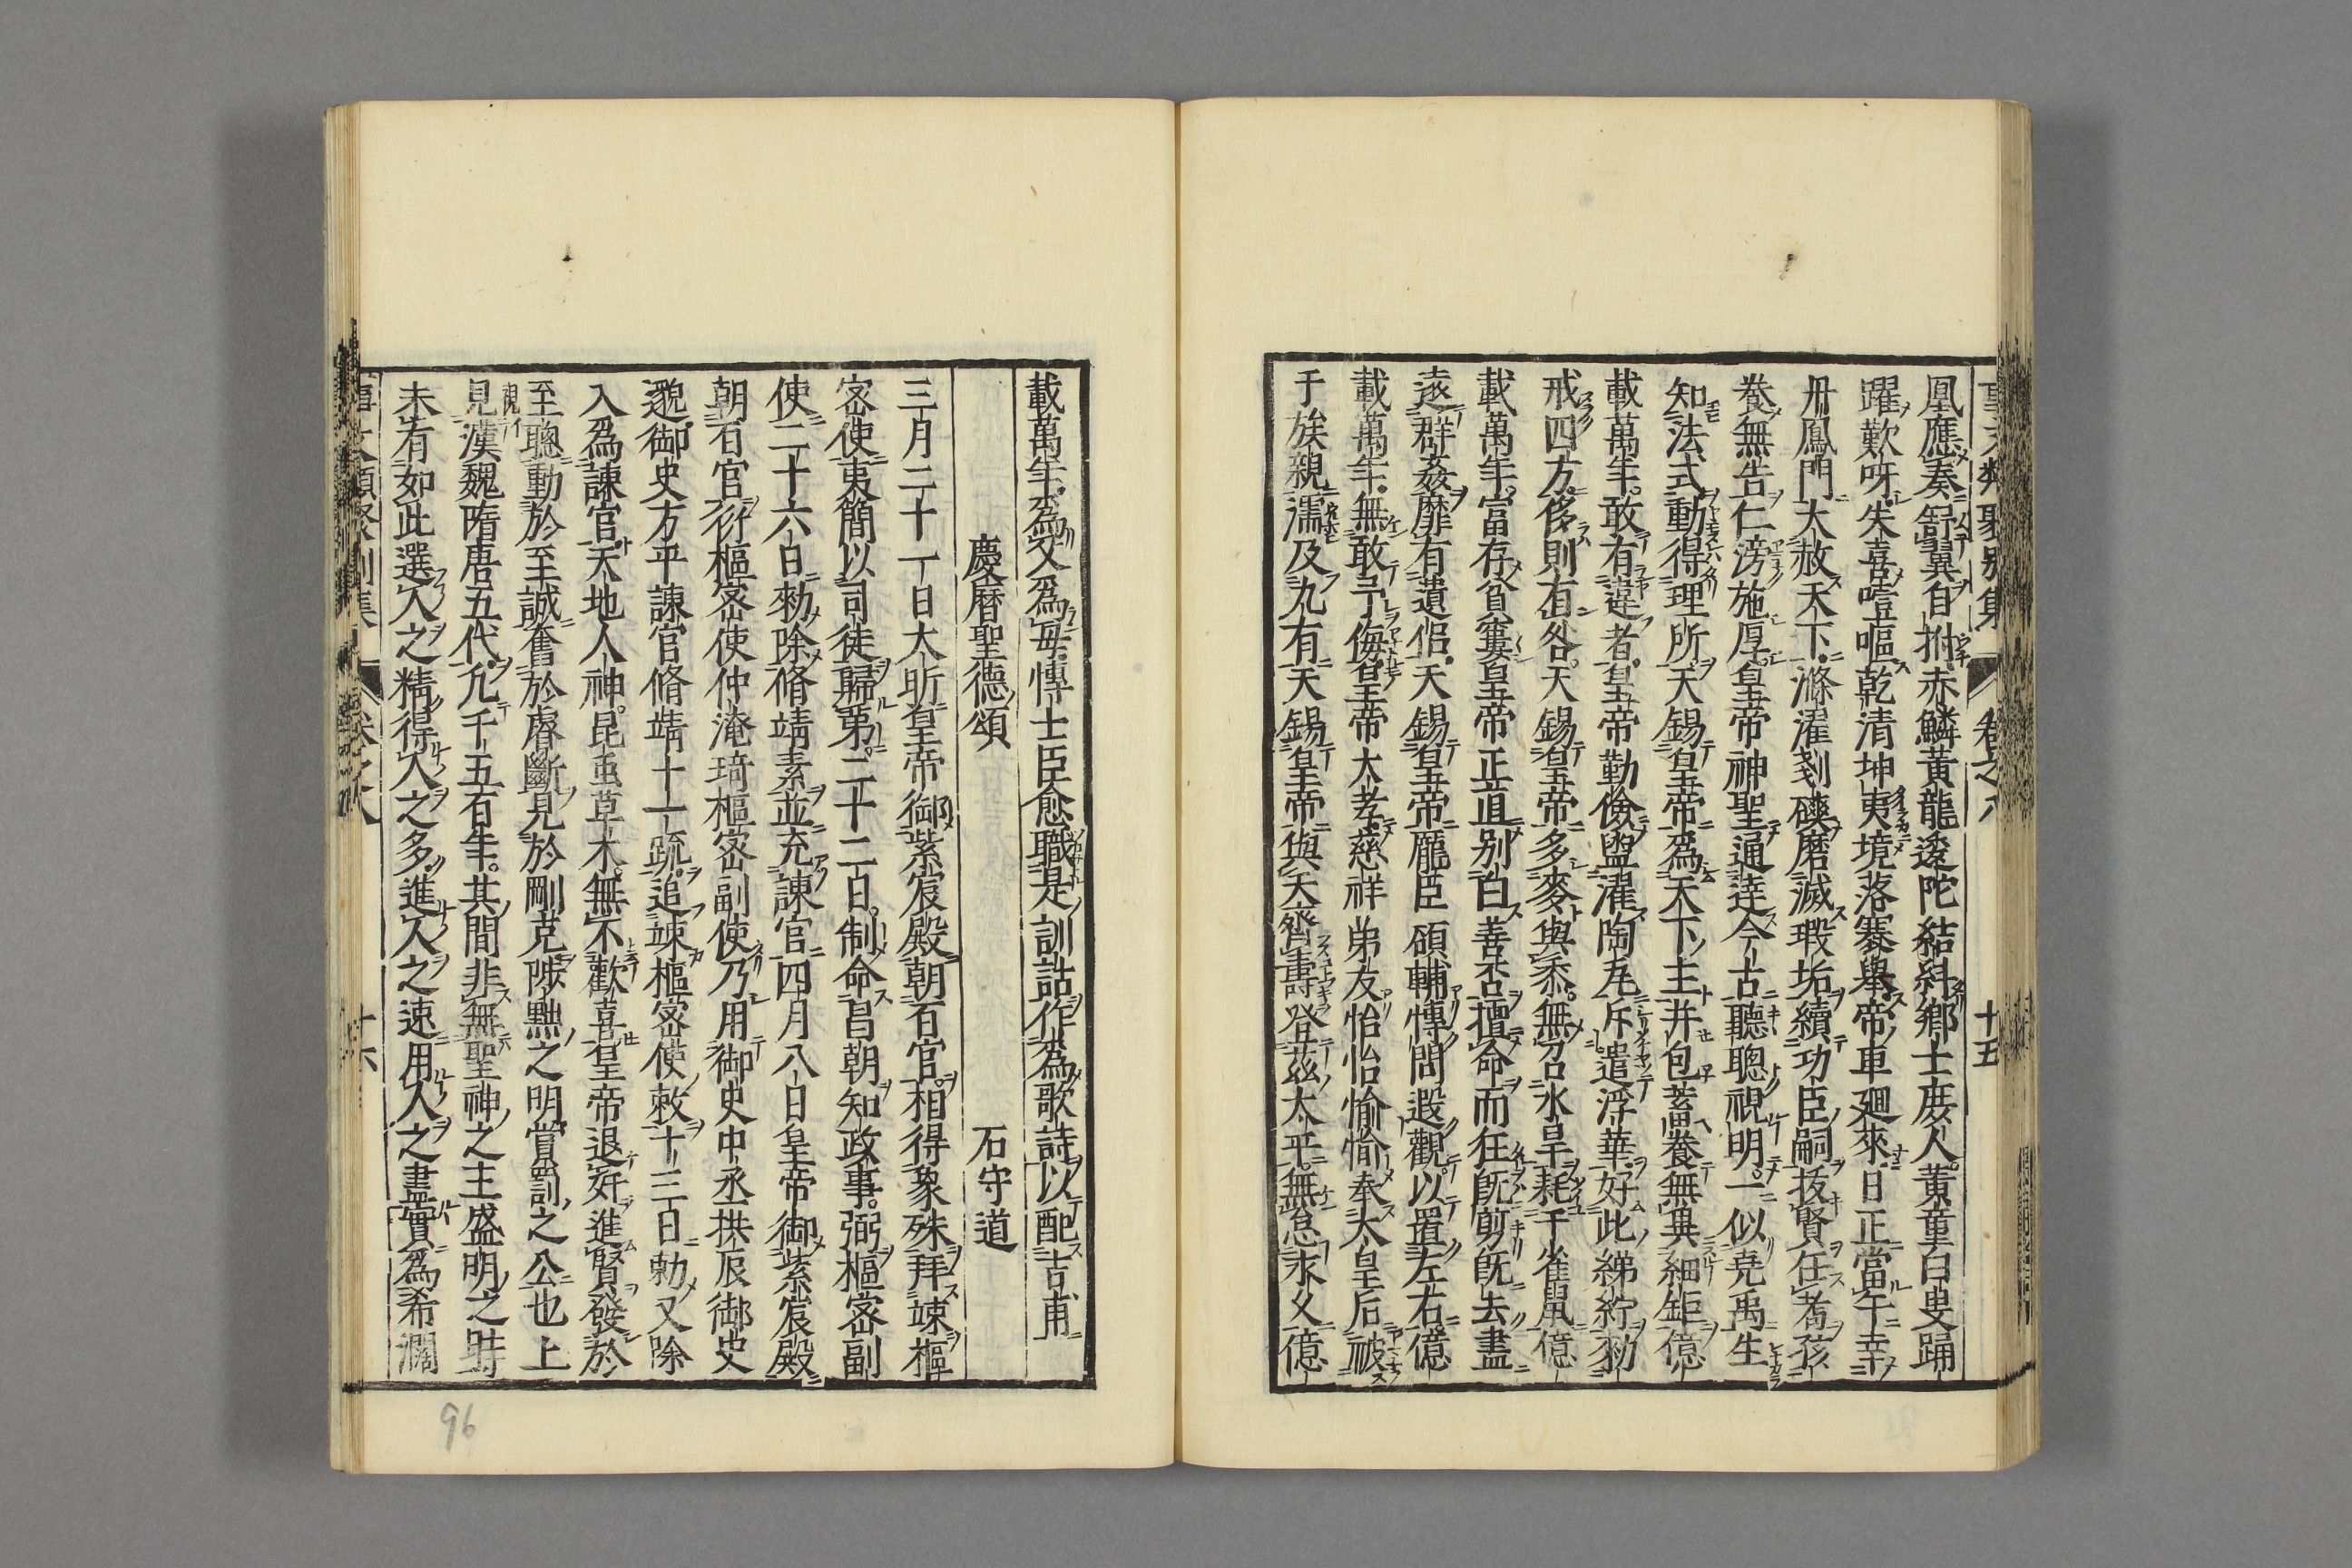 凰應奏舒翼自拊赤鱗黃龍逶陀結糾鄉士庶人黃童白叟踊
躍歎呀失喜噎嘔乾清坤夷境落褰舉帝車廻來日正當午幸
丹鳳門大赦天下滌濯剗磢磨滅瑕垢續功臣嗣拔賢任耇孩
養無告仁滂施厚皇帝神聖通達今古聽聰視明一似堯禹生
知法式動得理所天錫皇帝為天下主并包畜養無異細鉅億
載萬年敢有違者皇帝勤儉盥濯陶瓦斥遣浮華好此綈紵勑
戒四方侈則有咎天錫皇帝多麥與黍無召水旱耗于雀鼠億
載萬年富存貧窶皇帝正直别白善否擅命而狂既剪既去盡
逐群姦靡有遺侶天錫皇帝厖臣碩輔博問遐觀以置左右億
載萬年無敢予侮皇帝大孝慈祥弟友怡怡愉愉奉太皇后被
于族親濡及九有天錫皇帝與天齊壽登茲太平無怠永久億
十五
載萬年為父為母博士臣愈職是訓詁作為歌詩以配吉甫
慶曆聖德頌 石守道
三月二十一日大昕皇帝御紫宸殿朝百官相得象殊拜竦樞
密使夷簡以司徒歸第二十二日制命昌朝知政事弼樞密副
使二十六日勑除脩靖素並充諫官四月八日皇帝御紫宸殿
朝百官衍樞密使仲淹琦樞密副使乃用御史中丞拱辰御史
邈御史方平諫官脩靖十一疏追竦樞密使敕十三日勑又除
入為諫官天地人神昆虫草木無不歡喜皇帝退姧進賢發於
至聰動於至誠奮於睿斷見於剛克陟黜之明賞罰之公也上
見漢魏隋唐五代凢千五百年其間非無聖神之主盛明之時
未有如此選人之精得人之多進人之速用人之盡實為希濶
96